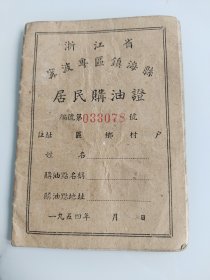 浙江省
寧波專區鎮海縣
居民購油證
編號第033078號
住址 區 鄉 村 户
姓名
購油點名稱
購油點地址
一九五四年 月 日